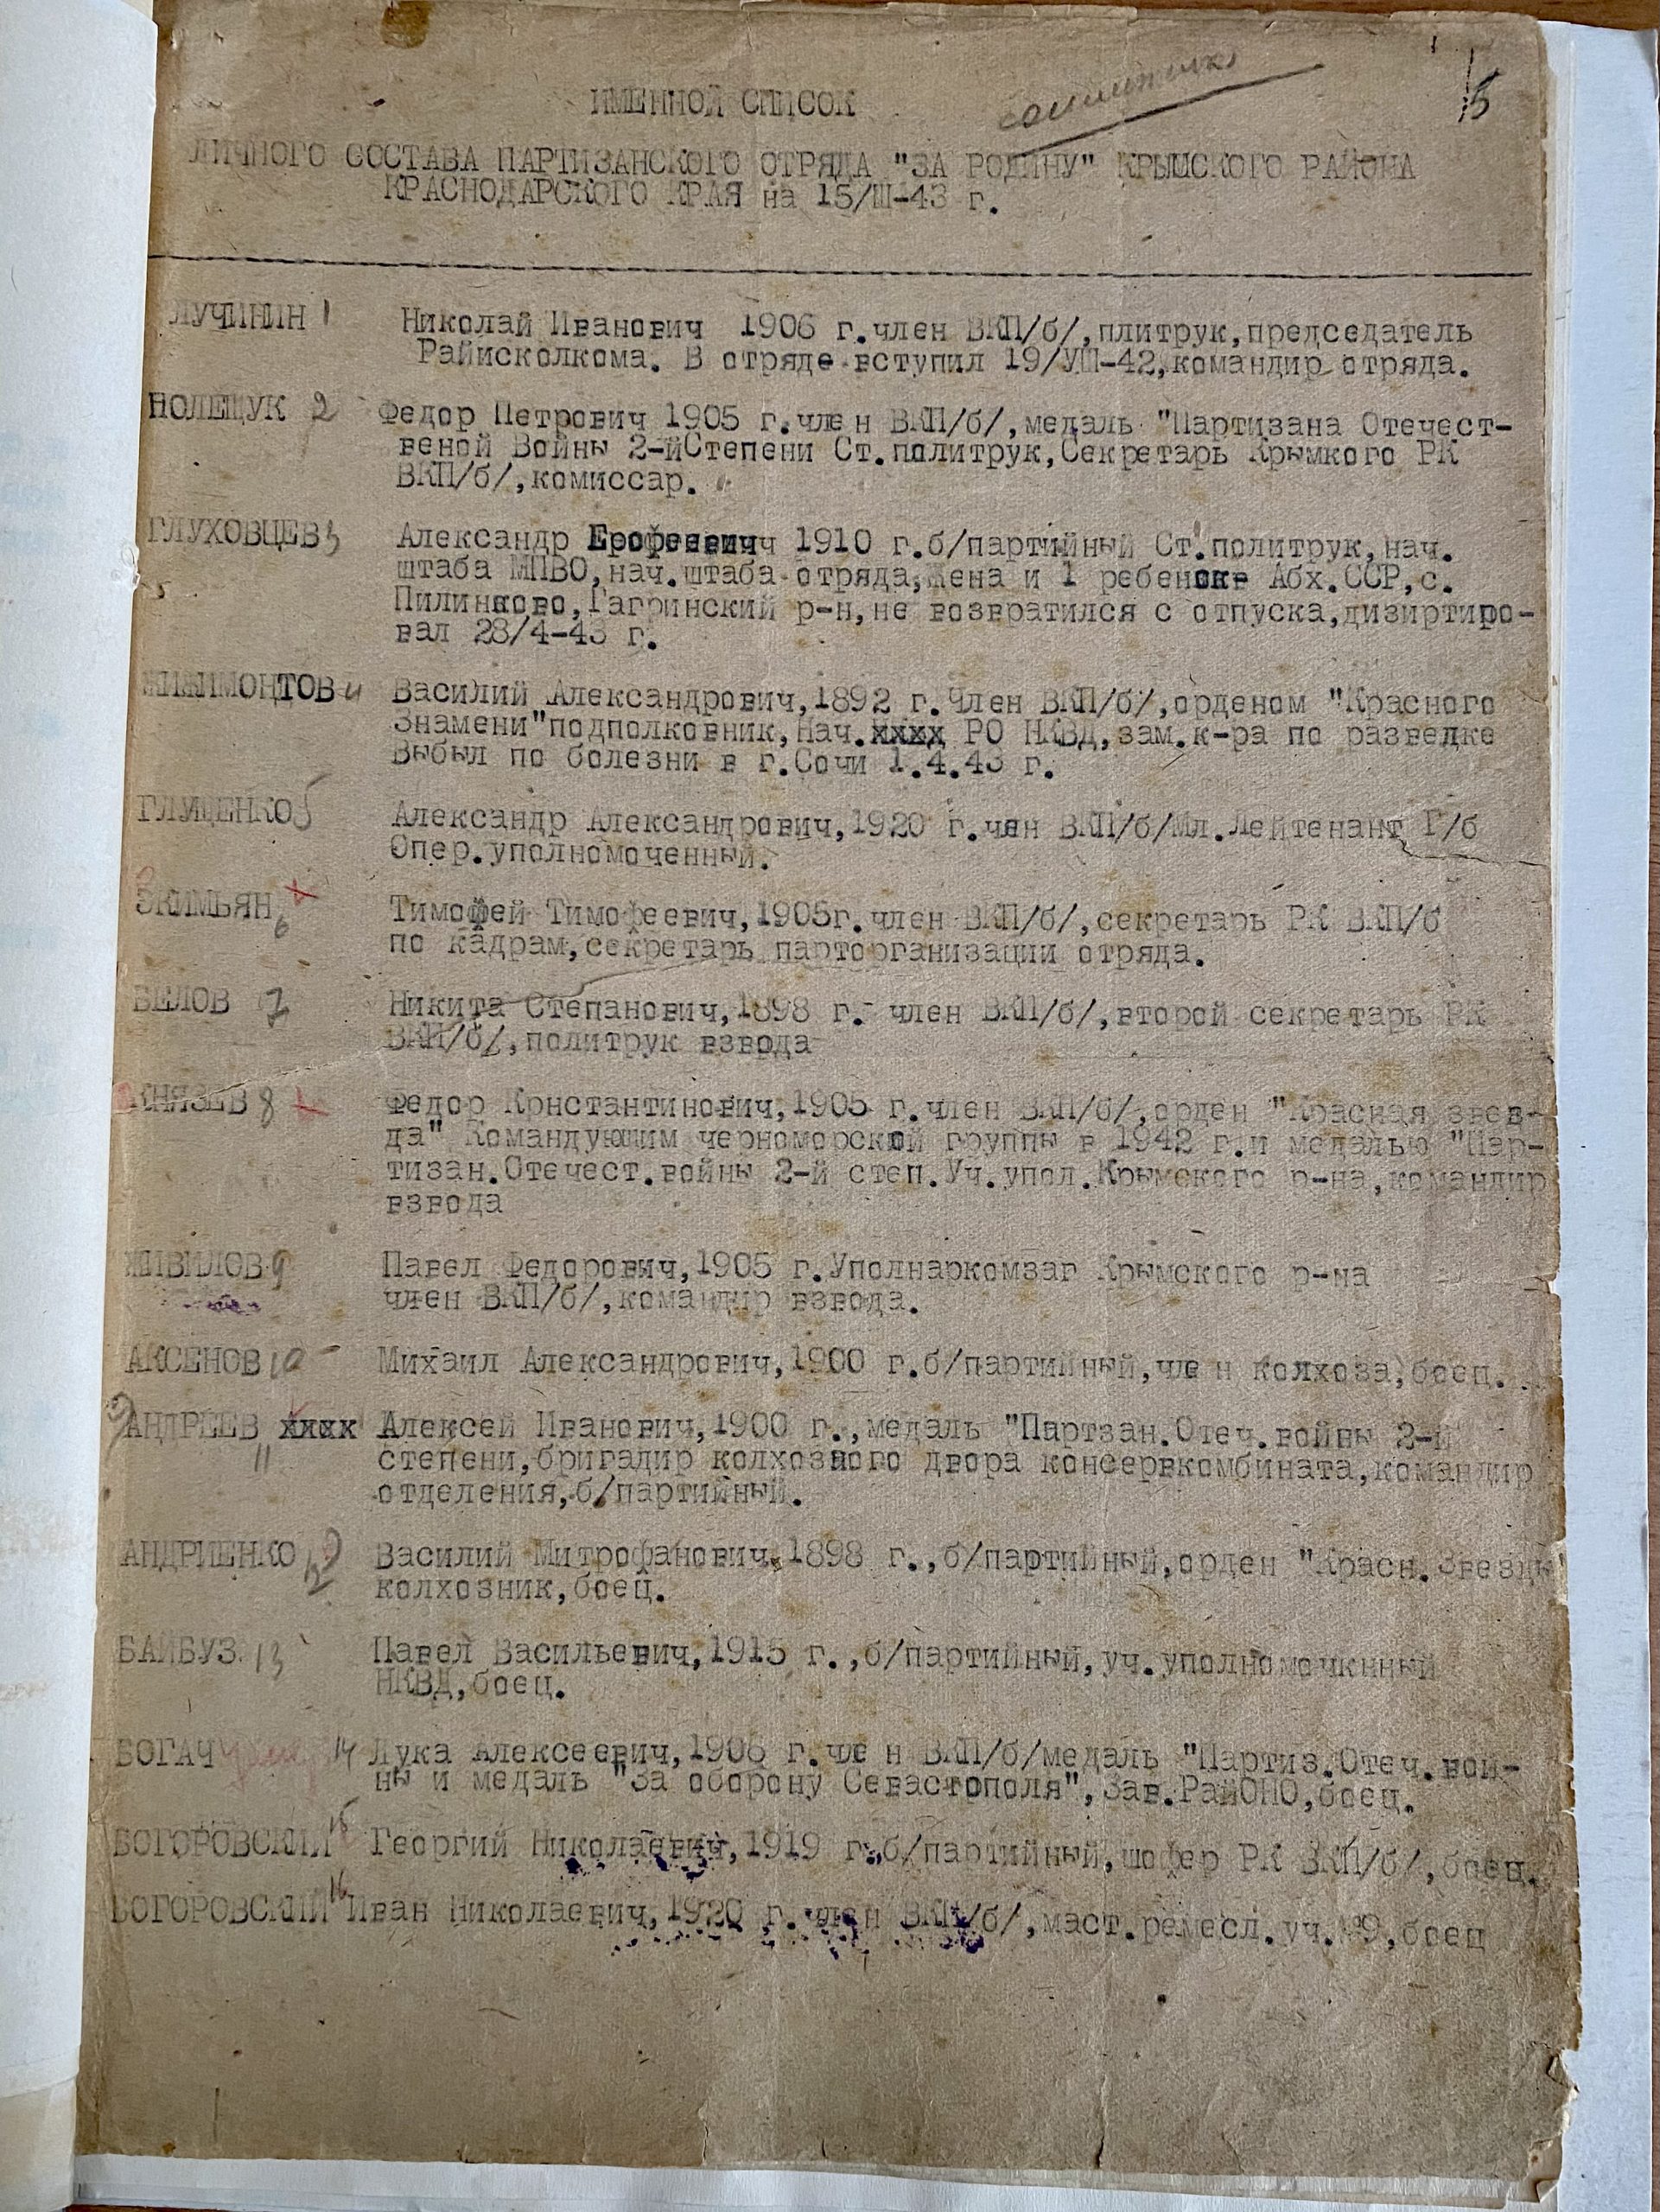 15
ИМЕННОЙ СПИСОК
ЛИЧНОГО СОСТАВА ПАРТИЗАНСКОГО ОТРЯДА "ЗА РОДИНУ" КРЫМСКОГО РАЙОНА
КРАСНОДАРСКОГО КРАЯ на 15/Ш-43 г.
ЛУЧИНИН 1 Николай Иванович 1906 г.член ВКП/б/,плитрук,председатель
Райисколкома. В отряде вступил 19/УШ-42,командир отряда.
ПОЛЕЩУК 2 Федор Петрович 1905 г.член ВКП/б/,медаль "Партизана Отечест-
веной Войны 2-йСтепени Ст.политрук,Секретарь Крымкого РК
ВКП/б/,комиссар.
ГЛУХОВЦЕВ 3 Александр Ерофеевичч 1910 г.б/партийный Ст.политрук,нач.
штаба МПВО,нач.штаба отряда,жена и 1 ребенок Абх.ССР,с.
Пилинково,Гагринский р-н,не возвратился с отпуска,дизиртиро-
вал 28/4-43 г.
ЖИЖИМОНТОВ 4 Василий Александрович,1892 г.Член ВКП/б/,орденом "Красного
Знамени"подполковник,Нач.хххх РО НКВД,зам.к-ра по разведке
Выбыл по болезни в г.Сочи 1.4.43 г.
ГЛУЩЕНКО 5 Александр Александрович,1920 г.члн ВКП/б/Мл.Лейтенант Г/б
Опер.уполномоченный.
ЭКИМЬЯН 6 Тимофей Тимофеевич,1905г.член ВКП/б/,секретарь РК ВКП/б
по кадрам,секретарь парторганизации отряда.
БЕЛОВ 7 Никита Степанович,1898 г. член ВКП/б/,второй секретарь РК
ВКП/б/,политрук взвода
КНЯЗЕВ 8 Федор Крнстантинович,1905 г.член ВКП/б/,орден "Красная звез-
да" Командующим черноморской группы в 1942 г.и медалью "Пар-
тизан.Отечест.войны 2-й степ.Уч.упол.Крымского р-на,командир
взвода
ЖИВИЛОВ 9 Павел Федорович,1905 г.Уполнаркомзаг Крымского р-на
член ВКП/б/,командир взвода.
АКСЕНОВ 10 Михаил Александрович,1900 г.б/партийный,член колхоза,боец.
АНДРЕЕВ хххх Алексей Иванович,1900 г.,медаль "Партзан.Отеч.войны 2-й
11 степени,бригадир колхозного двора консервкомбината,командир
отделения,б/партийный.
АНДРИЕНКО 12 Василий Митрофанович,1898 г.,б/партийный,орден "Красн.Звезды
колхозник,боец.
БАЙБУЗ 13 Павел Васильевич,1915 г.,б/партийный,уч.уполномочкнный
НКВД,боец.
БОГАЧ 14 Лука Алексеевич,1906 г.член ВКП/б/медаль "Партиз.Отеч.вой-
ны и медаль "За оборону Севастополя",Зав.РайОНО,боец.
БОГОРОВСКИЙ 15 Георгий Николаевич,1919 г.,б/партийный,шофер РК ВКП/б/,боец.
БОГОРОВСКИЙ 16 Иван Николаевич,1920 г.член ВКП/б/,маст.ремесл.уч.№9,боец